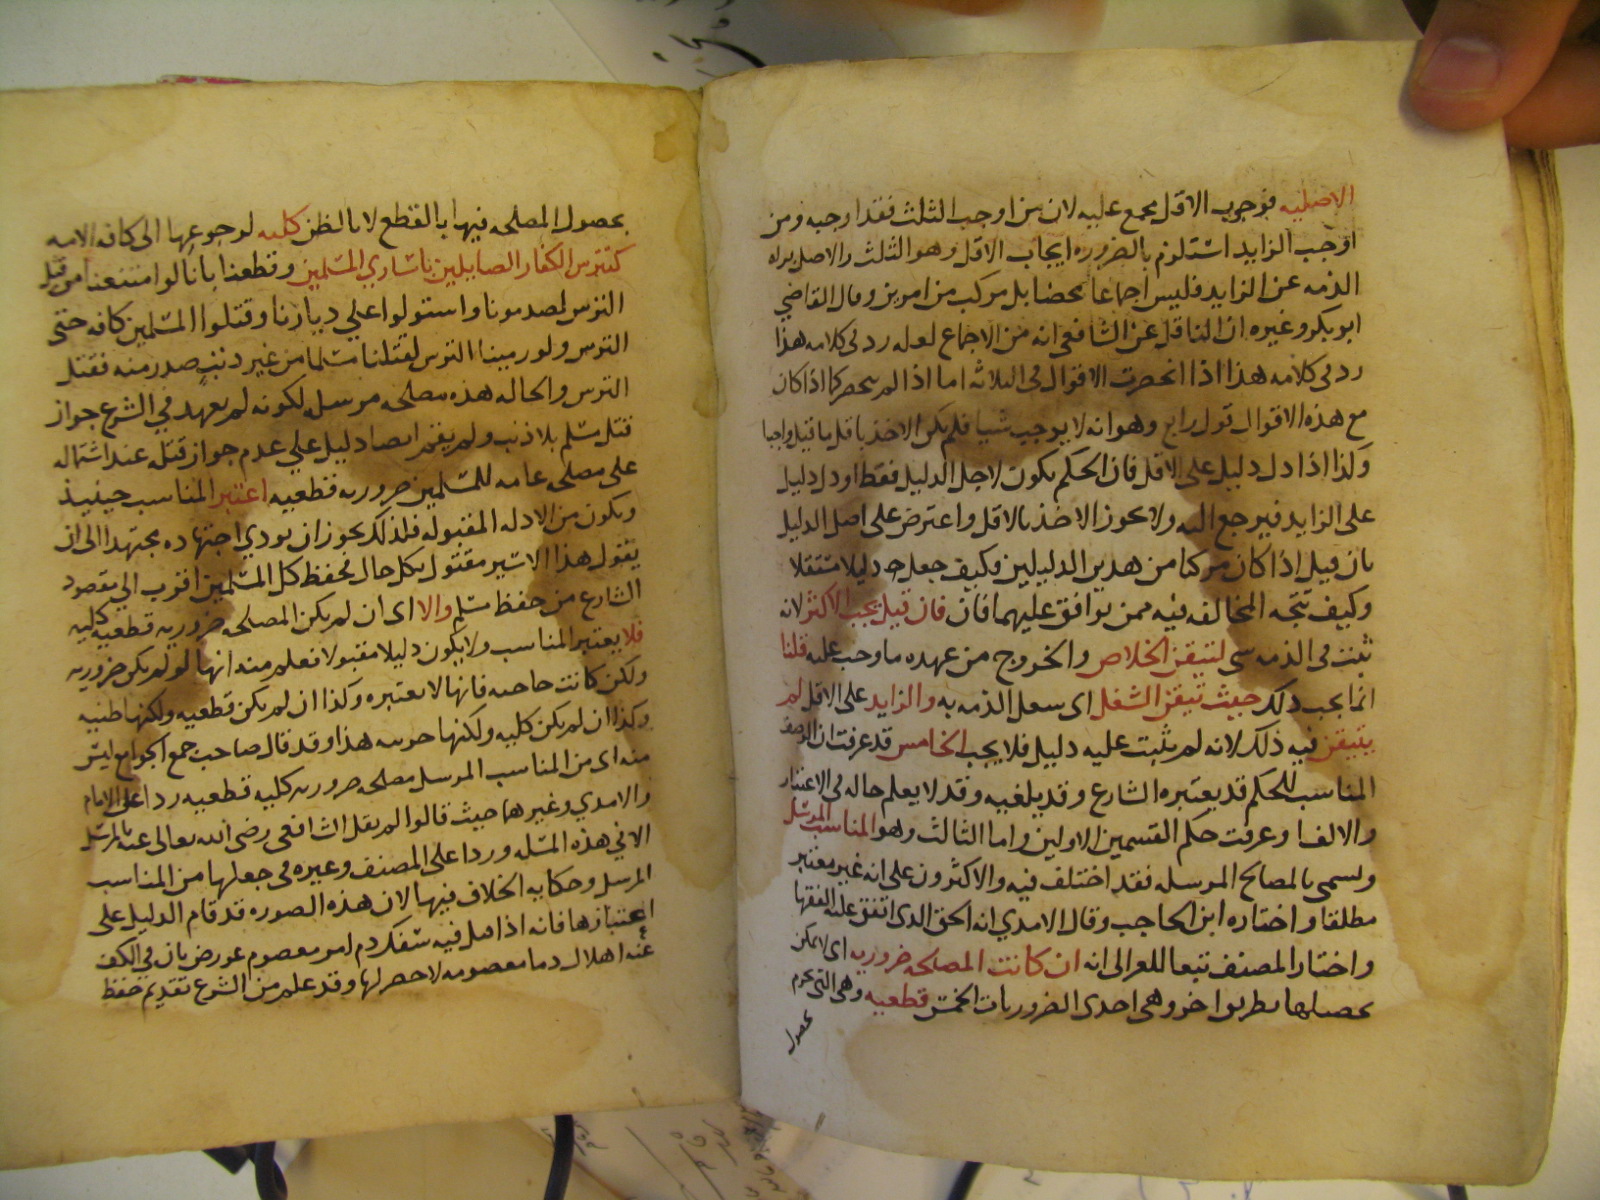 الاصليه فوجوب الاقل مجمع عليه لان من اوجب الثلث فقد اوجبه ومن
اوجب الزايد استلزم بالضروره ايجاب الاقل وهو الثلث والاصل براه
الذمه عن الزايد فليس اجماعا محضا بل مركب من امرين وقال القاضي
ابو بكر وغيره ان الناقل عن الشافعي انه من الاجماع لعله ردني كلامه هذا
ردني كلامه هذا اذا انحصرت الاقوال في الثلاثه اما اذا لم تنحصر كما اذا كان
مع هذه الاقوال قول رابع وهو انه لا يوجب شيا فلم يكن الاخذ باقل ما قيل واجبا
وكذا اذا دل دليل على الاقل فان الحكم يكون لاجل الدليل فقط او دل دليل
على الزايد فيرجع اليه ولا يجوز الاخذ بالاقل واعترض على اصل الدليل
بان قيل اذا كان مركبا من هذين الدليلين فكيف جعل دليلا مستقلا
وكيف تتجه المخالفه فيه ممن توافق عليهما فان فان قيل يجب الاكثر لانه
ثبت في الذمه شي لتيقن الخلاص والخروج من عهده ما وجب عليه قلنا
انما يجب ذلك حيث تيقن الشغل اى شغل الذمه به والزايد على الاقل لم
يتيقن فيه ذلك لانه لم يثبت عليه دليل فلا يجب الخامس قد عرفت ان الوصف
المناسب للحكم قد يعتبره الشارع وقد يلغيه وقد لا يعلم حاله في الاعتبار
والالغا وعرفت حكم القسمين الاولين واما الثالث وهو المناسب المرسل
ويسمى بالمصالح المرسله فقد اختلف فيه والاكثرون على انه غير معتبر
مطلقا واختاره ابن الحاجب وقال الامدي انه الحق الذي اتفق عليه الفقها
واختار المصنف تبعا للغزالى انه ان كانت المصلحه ضروريه اى لا يمكن
تحصيلها بطريق اخر وهي احدى الضروريات الخمس قطعيه وهي التي نجزم
بحصول
بحصول المصلحه فيها بالقطع لا بالظن كليه لوجوعها الى كافه الامه
كتترس الكفار الصايلين باساري المسلمين وقطعنا بانا لو امتنعنا من قتل
الترس لصدمونا واستولوا علي ديارنا وقتلوا المسلمين كافه حتى
الترس ولو رمينا الترس لقتلنا مسلما من غير ذنب صدر منه فقتل
الترس والحاله هذه مصلحه مرسله لكونه لم يعهد في الشرع جواز
قتل مسلم بلا ذنب ولم يقم ايضا دليل علي عدم جواز قتله عند اشتماله
على مصلحه عامه للمسلمين ضروريه قطعيه اعتبر المناسب حينيذ
ويكون من الادله المقبوله فلذلك يجوز ان يودي اجتهاده مجتهد الى ان
يقول هذا الاسير مقتول بكل حال فحفظ كل المسلمين اقرب الي مقصود
الشارع من حفظ مسلم والا اى ان لم يكن المصلحه ضروريه قطعيه كليه
فلا يعتبر المناسب ولا يكون دليلا مقبولا فعلم منه انها لو لم يكن ضروريه
ولكن كانت حاجيه فانها لا نعتبره وكذا ان لم يكن قطعيه ولكنها ظنيه
وكذا ان لم يكن كليه ولكنها جزييه هذا وقد قال صاحب جمع الجوامع ليس
منه اى من المناسب المرسل مصلحه ضروريه كليه قطعيه ردا على الامام
والامدي وغيرهما حيث قالوا لم يقل الشافعى رضى الله تعالى عنه بالمرسل
الا في هذه المسله وردا على المصنف وغيره في جعلها من المناسب
المرسل وحكايه الخلاف فيها لان هذه الصوره قد قام الدليل على
اعتبارها فانه اذا قيل فيه سفك دم امر معصوم عورض بان في الكف
عنه اهلاك دما معصومه لا حصر لها وقد علم من الشرع تقديم حفظ